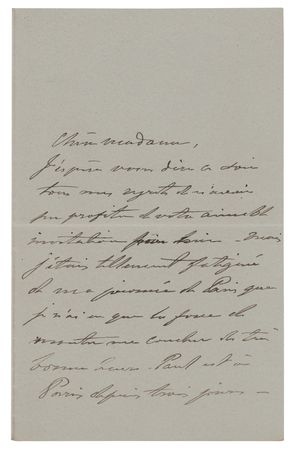 Chère madame,
J'espère vous dire ce soir
tous mes regrets de n'avoir
pu profiter de votre aimable
invitation hier soir – mais
j'étais tellement fatiguée
de ma journée de Paris que
je n'ai eu que la force de
me coucher de très
bonne heure. Paul est à
Paris depuis trois jours –